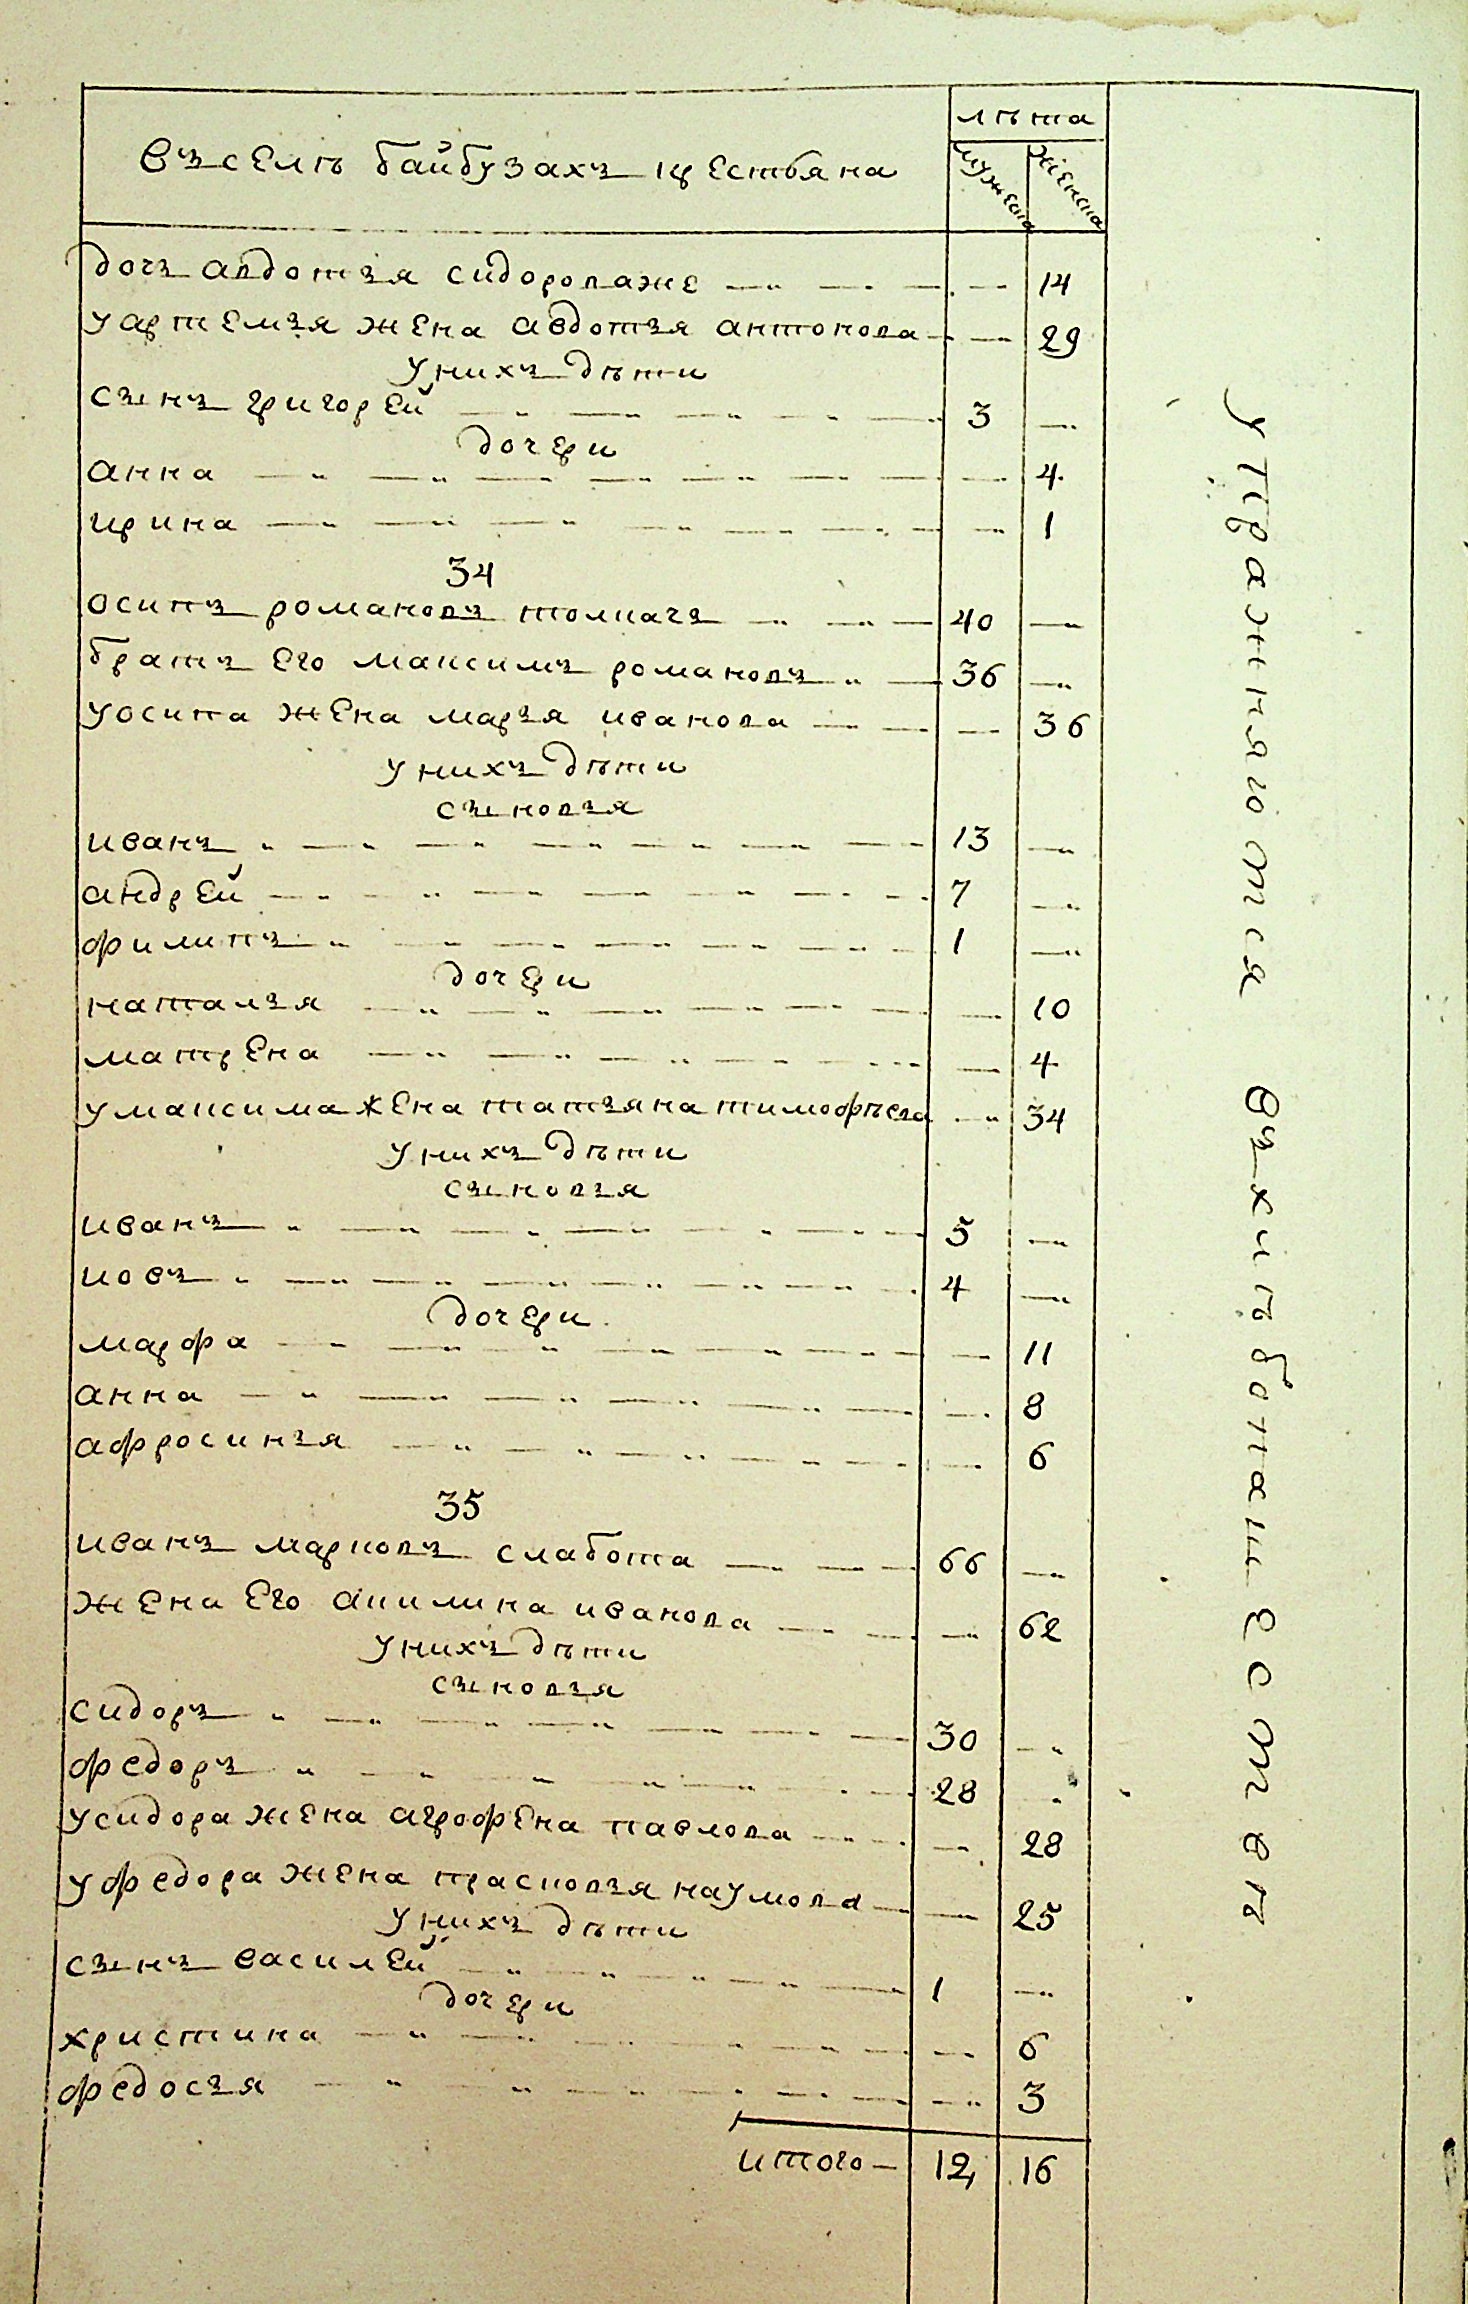 въселѣ байбузахъ крестьяна
лѣта
мужеска
женска
дочь авдотья сидороваже 14
уартемья жена авдотья антонова 29
унихъ дѣти
сынъ григорей 3
дочери
анна 4
ирина 1
34
осипъ романовъ толкачь 40
братъ его максимъ романовъ 36
уосипа жена марья иванова 36
унихъ дѣти
сыновья
иванъ 13
андрей 7
филипъ 1
дочери
наталья 10
матрена 4
умаксима жена татьяна тимофѣева 34
унихъ дѣти
сыновья
иванъ 5
иовъ 4
дочери
марфа 11
анна 8
афросинья 6
35
иванъ марковъ слабота 66
жена его акилина иванова 62
унихъ дѣти
сыновья
сидоръ 30
федоръ 28
усидора жена агрофена павлова 28
уфедора жена прасковья наумова 25
унихъ дѣти
сынъ василей 1
дочери
христина 6
федосья 3
итого 12, 16
упражняются въхлѣбопашествѣ